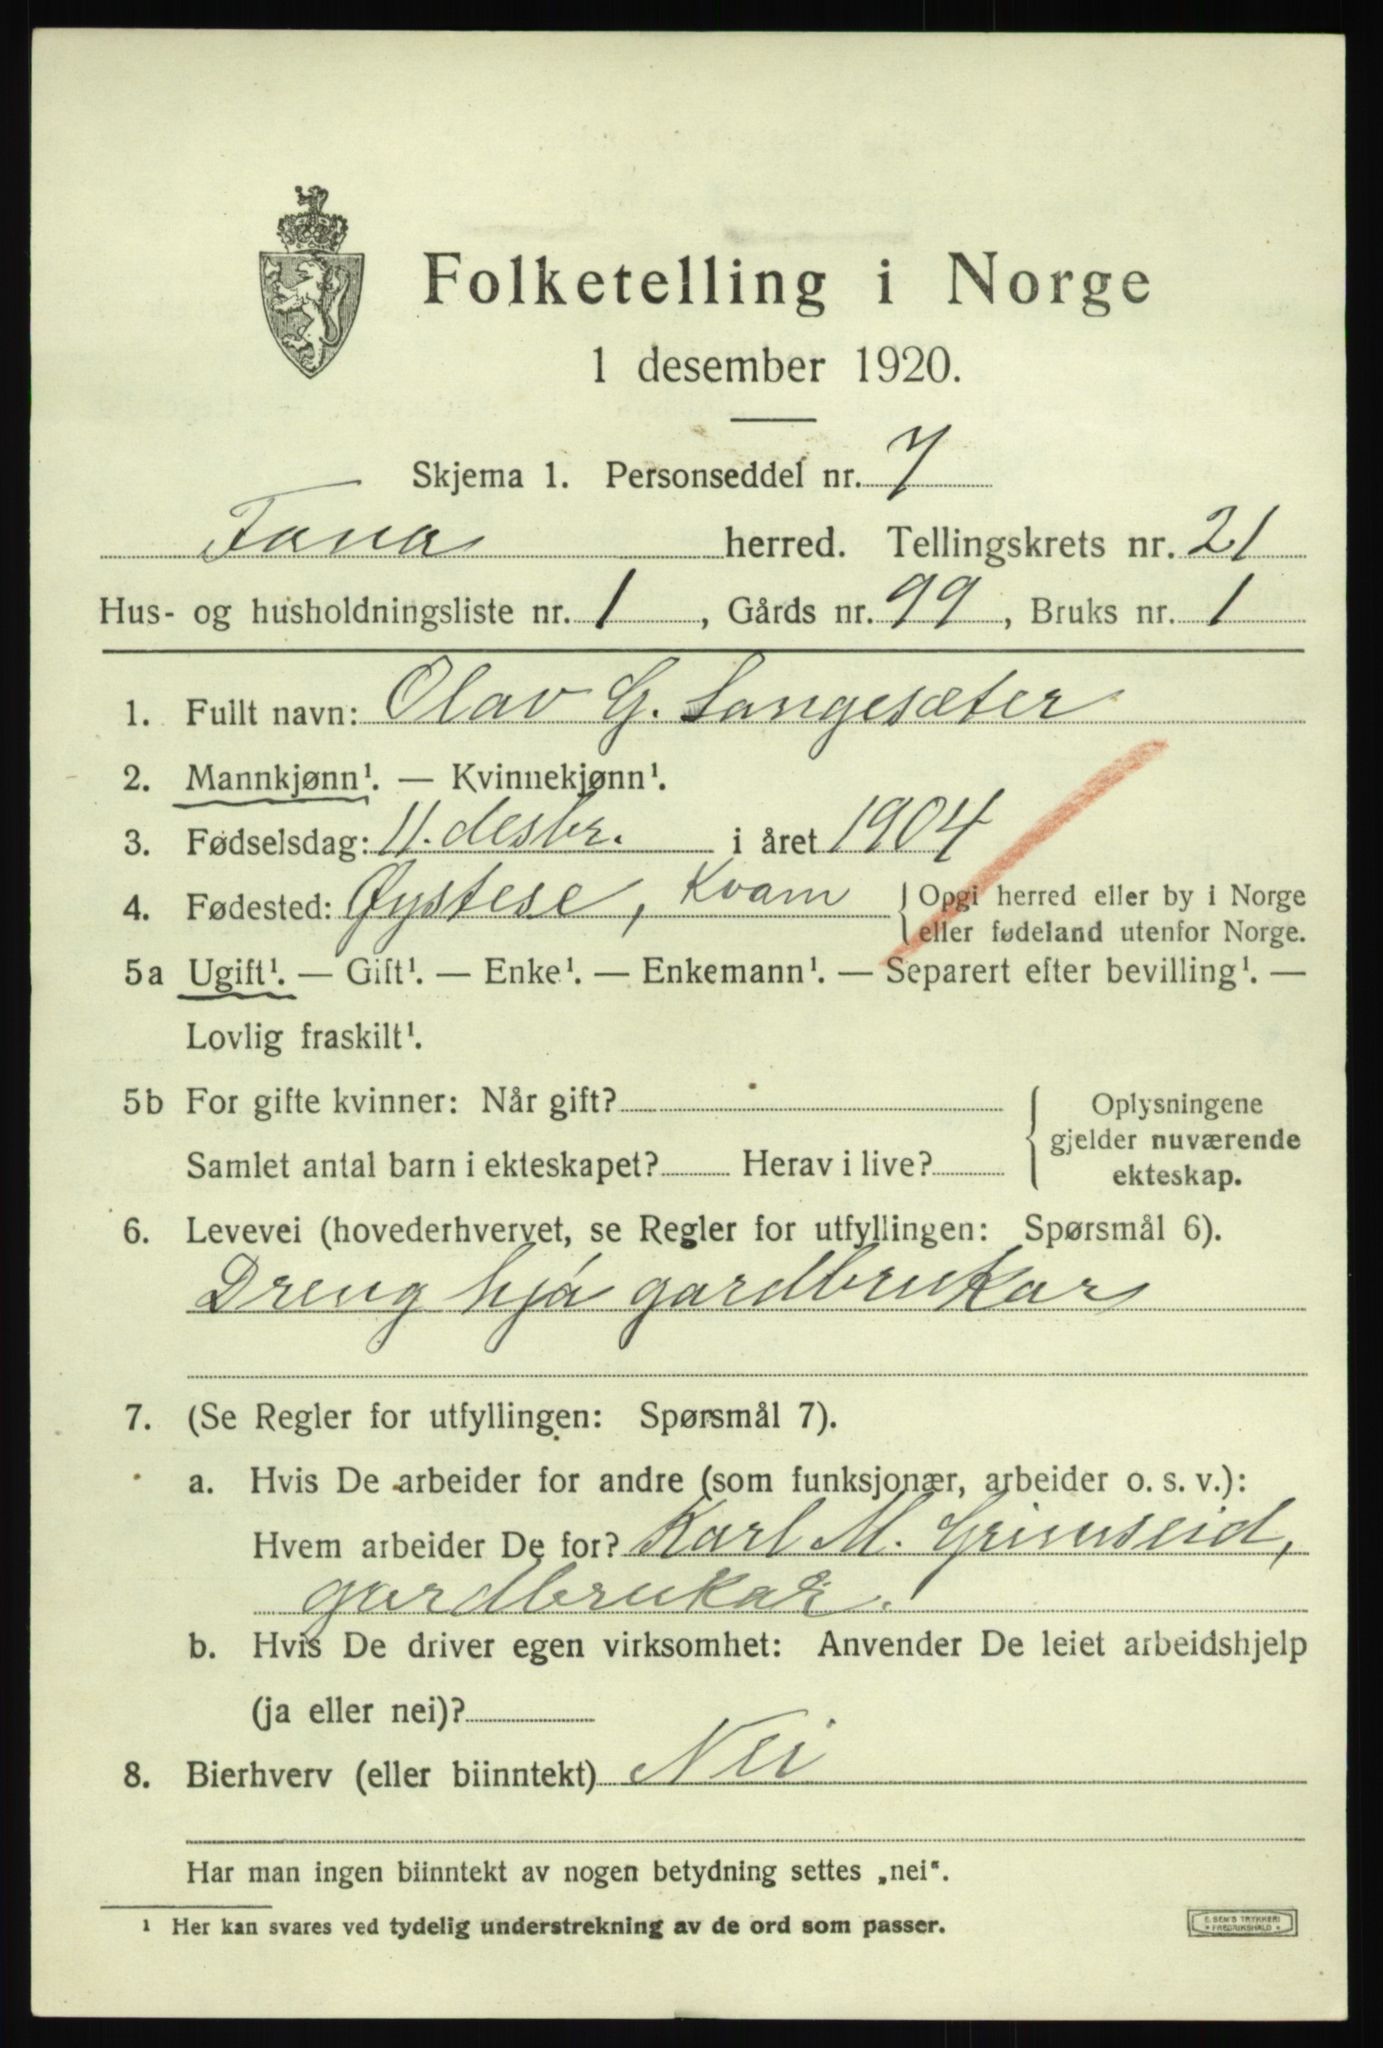 Folketelling i Norge
1 desember 1920.
Skjema 1. Personseddel nr. 7
Fana herred. Tellingskrets nr. 21
Hus- og husholdningsliste nr. 1, Gårds nr. 99, Bruks nr. 1
1. Fullt navn: Olav G. Langesæter
2. Mannkjønn¹. — Kvinnekjønn¹.
3. Fødselsdag: 11. desbr. i året 1904
4. Fødested: Øystese, Kvam { Opgi herred eller by i Norge
eller fødeland utenfor Norge.
5a Ugift¹. — Gift¹. — Enke¹. — Enkemann¹. — Separert efter bevilling¹. —
Lovlig fraskilt¹.
5b For gifte kvinner: Når gift?
Samlet antal barn i ekteskapet? Herav i live?
{ Oplysningene
gjelder nuværende
ekteskap.
6. Levevei (hovederhvervet, se Regler for utfyllingen: Spørsmål 6).
Dreng hjá gardbrukar
7. (Se Regler for utfyllingen: Spørsmål 7).
a. Hvis De arbeider for andre (som funksjonær, arbeider o. s. v.):
Hvem arbeider De for? Karl M. Grimseid,
gardbrukar.
b. Hvis De driver egen virksomhet: Anvender De leiet arbeidshjelp
(ja eller nei)?
8. Bierhverv (eller biinntekt) Nei
Har man ingen biinntekt av nogen betydning settes „nei“.
¹ Her kan svares ved tydelig understrekning av de ord som passer.
E. SEM'S TRYKKERI
* FREDRIKSHALD *